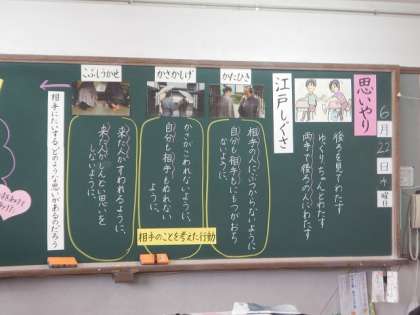 6月22日
曜日
思いやり
後ろを見てわたす
ゆっくりちゃんとわたす
両手で後ろの人にわたす
江戸しぐさ
かたひき
相手の人にぶつからないように
自分も相手もいもつがおち
ないように。
かさかしげ
かさがこわれないように
自分も相手もぬれない
ように。
こぶしうかせ
来た人がすわれるように、
来た人がしんどい思いを
しないように。
相手のことを考えた行動
相手にたいする、どのような思いがあるのだろう